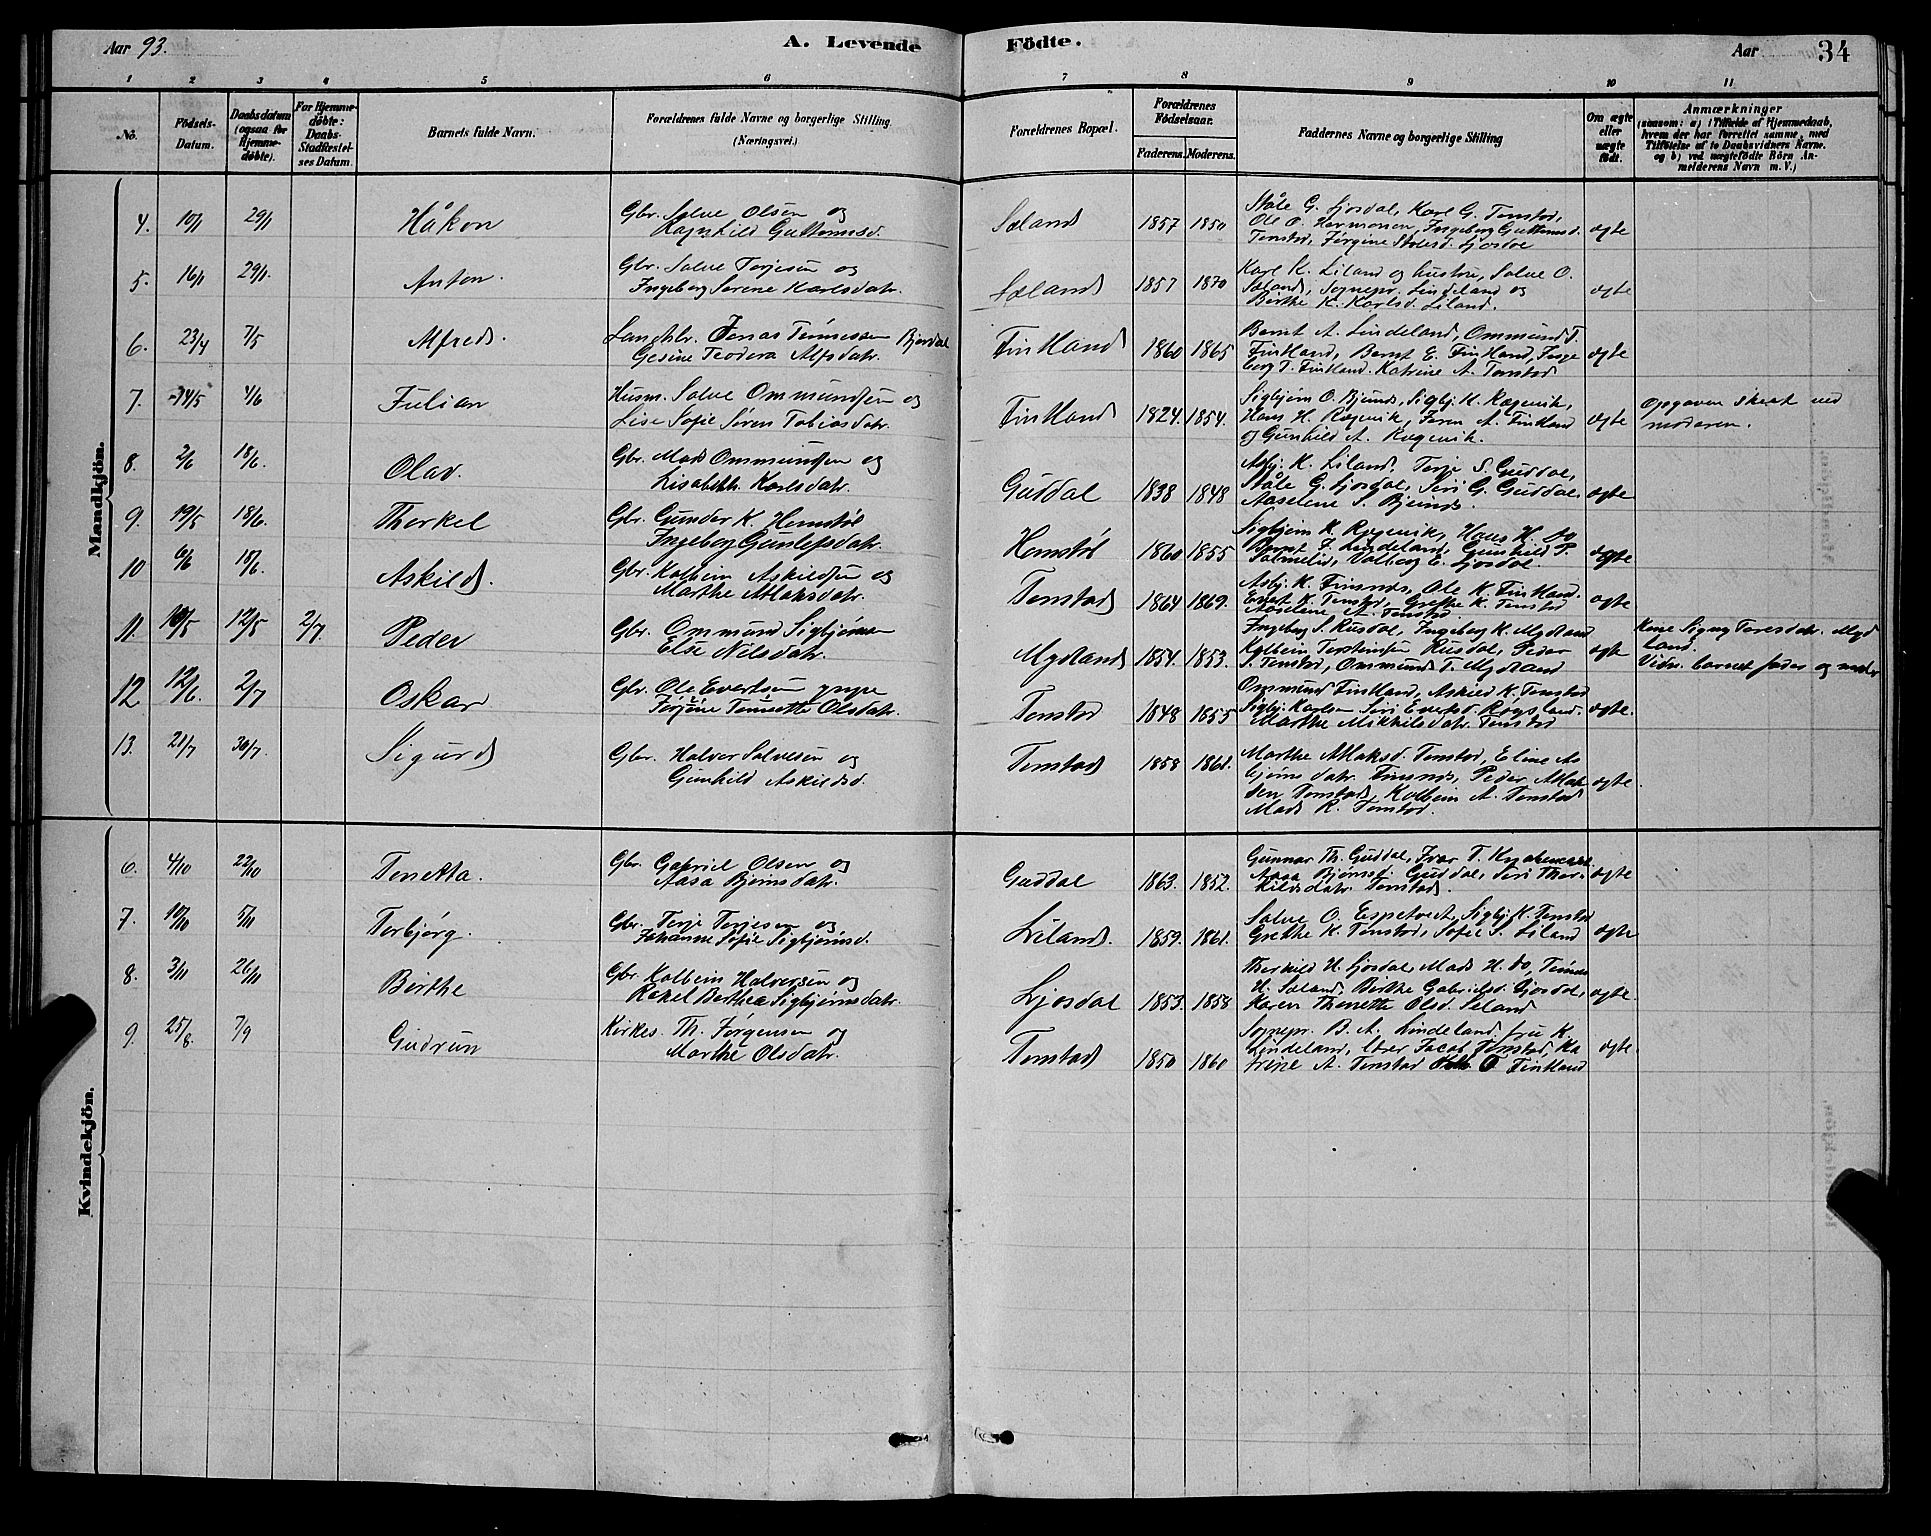 Aar 93. A. Levende Födte. Aar 34
1 2 3 4 5 6 7 8 9 10 11
No. Födsels-Datum. Daabsdatum (ogsaa for Hjemmedöbte). For Hjemmedöbte: Daabs-Stadfæstelses Datum. Barnets fulde Navn. Forældrenes fulde Navne og borgerlige Stilling (Næringsvei.) Forældrenes Bopæl. Forældrenes Födselsaar. Faderens. Moderens. Faddernes Navne og borgerlige Stilling Om ægte eller uægte födt. Anmærkninger (saasom: a) i Tilfælde af Hjemmedaab, hvem der har forrettet samme, med Tilföielse af to Daabsvidners Navne, og b) ved uægtefödte Börn Anmelderens Navn m. V.)
Mandkjön.
4. 10/1 29/1 Håkon Gbr. Salve Olsen og Sæland 1857 1850 Ståle G. Ljosdal, Karl G. Tonstad, ægte
Ragnhild Guttormsd. Ole O. Hermonson, Ingeborg Guttormsd.
Tonstad, Jørgine Stålesd. Ljosdal
5. 16/1 29/1. Anton. Gbr. Salve Terjesen og Sæland 1857 1870 Karl K. Liland og hustru, Salve O. ægte
Ingeborg Serene Karlsdatr. Sæland, Sognepr. Lindeland og
Birthe K. Karlsd. Liland.
6. 23/4 7/5 Alfred. Jonas Tønnessen Bjordal Fintland 1860 1865 Bernt A. Lindeland, Ommund T. ægte
Gesine Teodora Alfsdatr. Fintland, Bernt E. Fintland, Inge
borg T. Fintland. Katrine A. Tonstad
7. 14/5 4/6 Julian Husm. Salve Ommundsen og Fintland 1824. 1854. Sigbjørn O. Bjunes, Sigbj. H. Rægevik, ægte Opgaven skeet ved
Lise Sofie Søren Tobiasdatr. Hans H. Rægevik, Søren A. Fintland moderen.
og Gunhild A. Rægevik.
8. 2/6 18/6. Olav. Gbr. Mads Ommundsen og Guddal 1838 1848 Asbj. K. Liland, Terje S. Guddal, ægte
Lisabeth Karlsdatr. Ståle G. Ljosdal, Siri G. Guddal,
Aaselene S. Bjunes.
9. 19/5 18/6. Thorkel Gbr. Gunder K. Homstøl Homstøl 1860 1855 Sigbjørn K. Rægevik, Hans H. do ægte
Ingeborg Gunleifsdatr. Bernt F. Lindeland, Gunhild P.
Salmelid, Valborg E. Ljosdal.
10 6/6 18/6. Askild. Gbr. Kolbein Askildsen og Tonstad 1864 1869. Asbj. K. Finsnes, Ole K. Fintland. ægte
Marthe Atlaksdatr. Evert K. Tonstad, Grethe K. Tonstad
Aaselene A. Tonstad
11. 10/5 12/5 2/7. Peder Gbr. Ommund Sigbjørnsen Mydland 1854. 1853. Ingeborg S. Rusdal, Ingeborg K. Mydland ægte Kone Signy Toresdatr. Myd
Else Nilsdatr. Kolbein Torstensen Rusdal, Peder land.
S. Tonstad, Ommund T. Mydland Vidn. barnets fader og moder
12 12/6. 2/7 Oskar Gbr. Ole Evertsen yngre Tonstad 1848 1855 Ommund Fintland, Askild K. Tonstad ægte.
Jørgine Tomette Olsdatr. Sigbj. Karlsen Siri Evertsd. Røysland.
Marthe Mikkilsdatr. Tonstad
13. 21/7 30/7. Sigurd Gbr. Halver Salvesen og Tonstad 1858 1861. Marthe Atlaksd. Tonstad, Eline As ægte
Gunhild Askildsd. bjørnsdatr. Finsnes, Peder Atlak
sen Tonstad, Kolbein A. Tonstad
Mads R. Tonstad.
Kvindekjön.
6. 4/10 22/10 Tonetta. Gbr. Gabriel Olsen og Guddal 1863. 1852. Gunnar Th. Guddal, Ivar T. ægte
Aasa Bjørnsdatr. Aasa Bjørnsd. Guddal, Siri Thor-
kildsdatr. Tonstad.
7. 10/10 5/11 Torbjørg. Gbr. Terje Terjesen og Liland. 1859. 1861. Salve O. Espetveit, Sigbj. K. Tonstad ægte
Johanne Sofie Sigbjørnsd. Grethe K. Tonstad, Sofie S. Liland
8. 3/11 26/11 Børthe Gbr. Kolbein Halvorsen og Ljosdal 1853. 1858 Therkild H. Ljosdal, Mads H. do, Tønnes ægte.
Rakel Berthea Sigbjørnsdatr. H. Sæland, Birthe Gabrielsd. Ljosdal,
Karen Thonette Olsd. Seland
9. 25/8. 7/9 Gudrun Kirkes. Th. Jørgensen og Tonstad 1850 1860 Sognepr. B. A. Lindeland, fru K. ægte.
Marthe Olsdatr. Lindeland, lærer Jacob Tonstad, Ka
trine A. Tonstad O Fintland